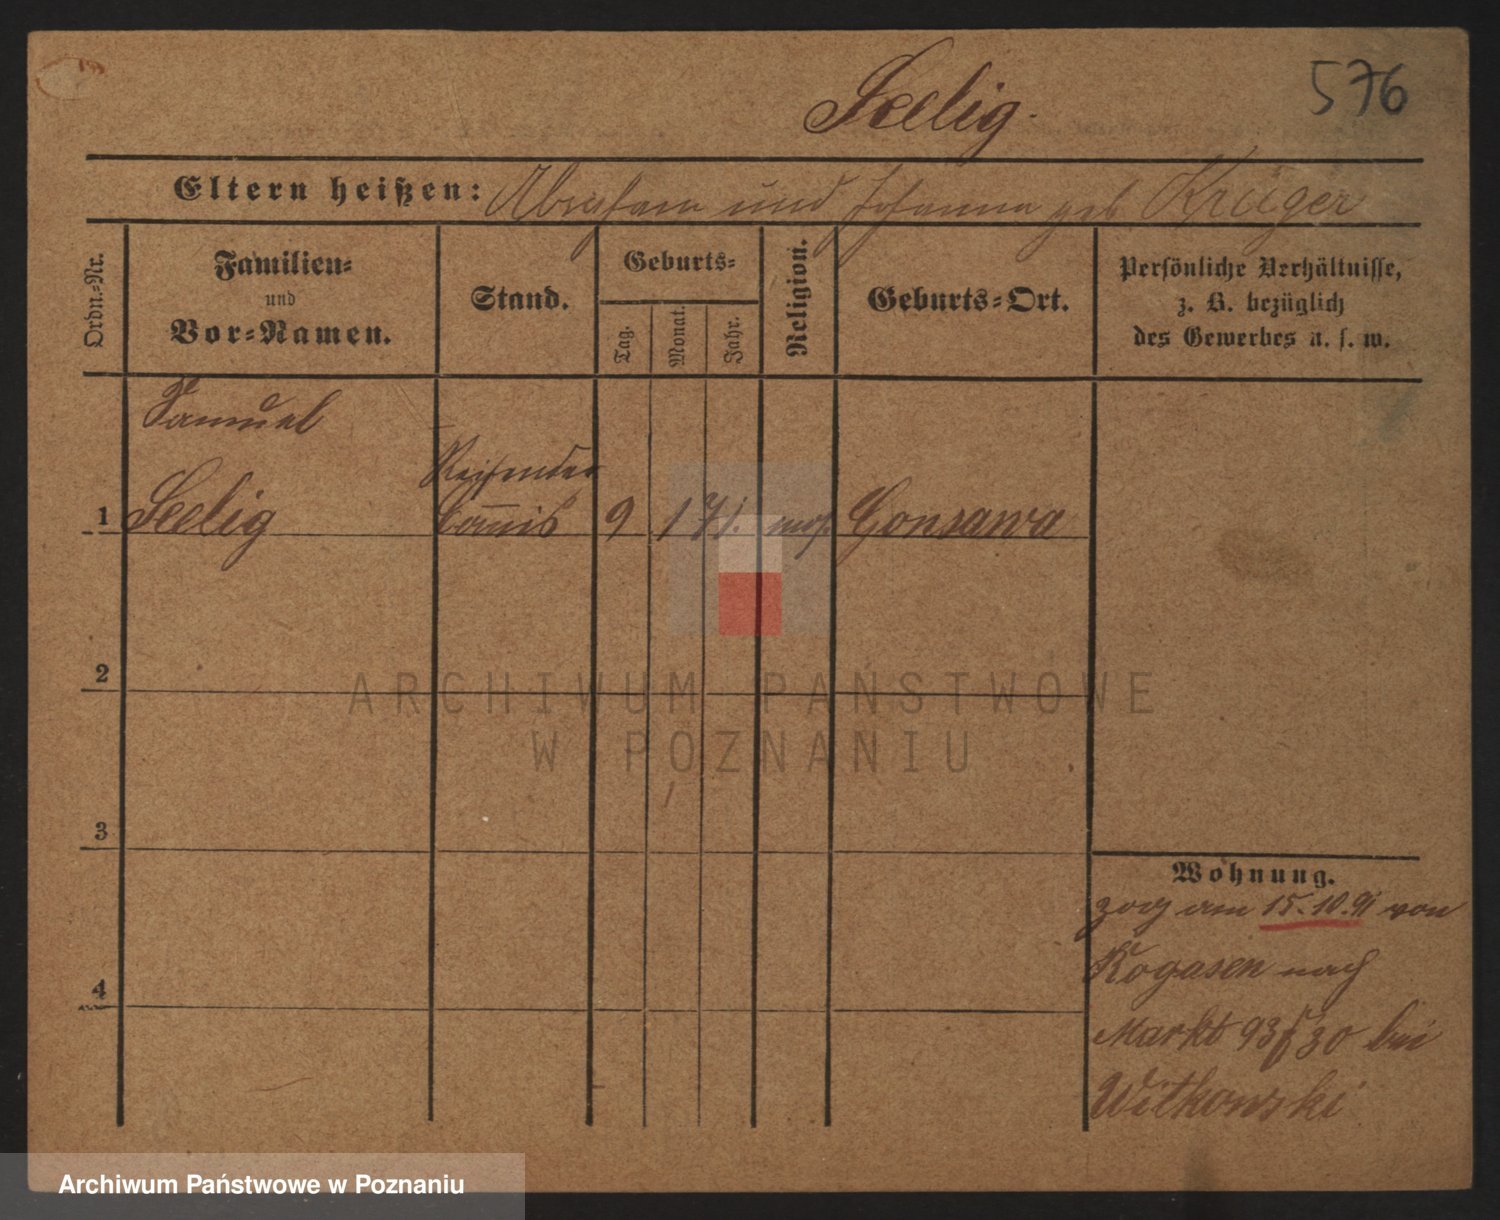 Seelig.
576
Eltern heißen: Abraham und Johanna geb Krüger
Ordn.-Nr.
Familien-
und
Vor-Namen.
Stand.
Geburts-
Tag.
Monat.
Jahr.
Religion.
Geburts-Ort.
Persönliche Verhältnisse,
z. B. bezüglich
des Gewerbes u. s. w.
Samuel
Reisender
1 Seelig Commis 9 1 71. mos. Gonsawa
2
ARCHIWUM PAŃSTWOWE
W POZNANIU
3
Wohnung.
zog am 15.10.91 von
Rogasen nach
4
Markt 93/30 bei
Witkowski
Archiwum Państwowe w Poznaniu